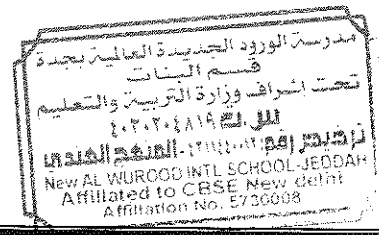 مدرسة الورود الجديدة العالمية بجدة
قسم البنات
تحت إشراف وزارة التربية والتعليم
المنهج الهندي
New AL WUROOD INTL SCHOOL-JEDDAH
Affiliated to CBSE New delhi
Affiliation No. 5730008